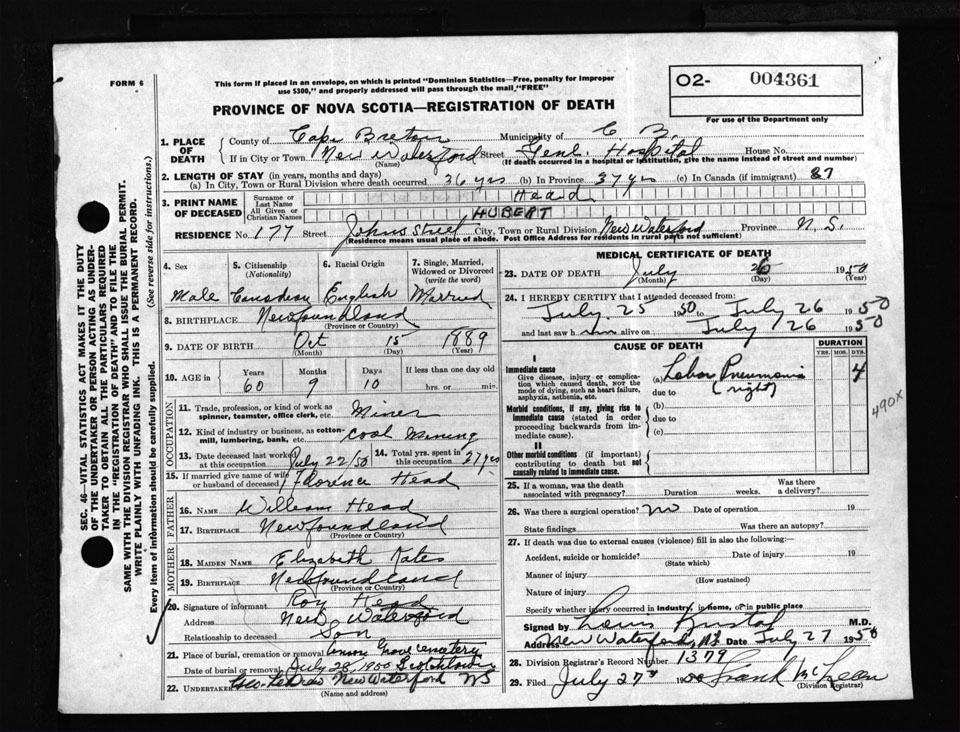 FORM 6
This form if placed in an envelope, on which is printed "Dominion Statistics—Free, penalty for improper
use $300," and properly addressed will pass through the mail "FREE"
PROVINCE OF NOVA SCOTIA—REGISTRATION OF DEATH
O2- 004361
For use of the Department only
SEC. 46—VITAL STATISTICS ACT MAKES IT THE DUTY
OF THE UNDERTAKER OR PERSON ACTING AS UNDER-
TAKER TO OBTAIN ALL THE PARTICULARS REQUIRED
IN THE "REGISTRATION OF DEATH" AND TO FILE THE
SAME WITH THE DIVISION REGISTRAR WHO SHALL ISSUE THE BURIAL PERMIT.
WRITE PLAINLY WITH UNFADING INK. THIS IS A PERMANENT RECORD.
Every item of information should be carefully supplied. (See reverse side for instructions.)
1. PLACE OF DEATH County of Cape Breton Municipality of C. B.
If in City or Town New Waterford Street Genl. Hospital House No.
(Name) (If death occurred in a hospital or institution, give the name instead of street and number)
2. LENGTH OF STAY (in years, months and days)
(a) In City, Town or Rural Division where death occurred 36 yrs (b) In Province 37 yrs (c) In Canada (if immigrant) 37
3. PRINT NAME OF DECEASED Surname or Last Name Head
All Given or Christian Names HUBERT
RESIDENCE No. 177 Street Johns Street City, Town or Rural Division New Waterford Province N. S.
(Residence means usual place of abode. Post Office Address for residents in rural parts not sufficient)
4. Sex 5. Citizenship (Nationality) 6. Racial Origin 7. Single, Married, Widowed or Divorced (write the word)
Male Canadian English Married
8. BIRTHPLACE Newfoundland
(Province or Country)
9. DATE OF BIRTH Oct 15 1889
(Month) (Day) (Year)
10. AGE in Years Months Days If less than one day old
60 9 10 hrs. or min.
OCCUPATION
11. Trade, profession, or kind of work as spinner, teamster, office clerk, etc. Miner
12. Kind of industry or business, as cotton-mill, lumbering, bank, etc. Coal Mining
13. Date deceased last worked at this occupation July 22/50 14. Total yrs. spent in this occupation 37 yrs
15. If married give name of wife or husband of deceased Florence Head
FATHER
16. NAME William Head
17. BIRTHPLACE Newfoundland
(Province or Country)
MOTHER
18. MAIDEN NAME Elizabeth Kates
19. BIRTHPLACE Newfoundland
(Province or Country)
20. Signature of informant Roy Head
Address New Waterford
Relationship to deceased Son
21. Place of burial, cremation or removal Union Grove Cemetery
Date of burial or removal July 28, 1950 Scotchtown
22. UNDERTAKER New Waterford NS
(Name and address)
MEDICAL CERTIFICATE OF DEATH
23. DATE OF DEATH July 26 1950
(Month) (Day) (Year)
24. I HEREBY CERTIFY that I attended deceased from:
July 25 1950 to July 26 1950
and last saw him alive on July 26 1950
CAUSE OF DEATH DURATION
YRS. MOS. DYS.
I
Immediate cause
Give disease, injury or complication which caused death, NOT the mode of dying, such as heart failure, asphyxia, asthenia, etc.
(a) Lobar Pneumonia 4
due to (right)
Morbid conditions, if any, giving rise to immediate cause (stated in order proceeding backwards from immediate cause).
(b)
due to
(c)
II
Other morbid conditions (if important) contributing to death but not causally related to immediate cause.
490X
25. If a woman, was the death associated with pregnancy? Duration weeks. Was there a delivery?
26. Was there a surgical operation? no Date of operation 19
State findings Was there an autopsy?
27. If death was due to external causes (violence) fill in also the following:—
Accident, suicide or homicide? Date of injury 19
(State which)
Manner of injury
(How sustained)
Nature of injury
Specify whether injury occurred in industry, in home, or in public place
Signed by M.D.
Address New Waterford, NS Date July 27 1950
28. Division Registrar's Record Number 1379
29. Filed July 27 1950 Frank
(Division Registrar)